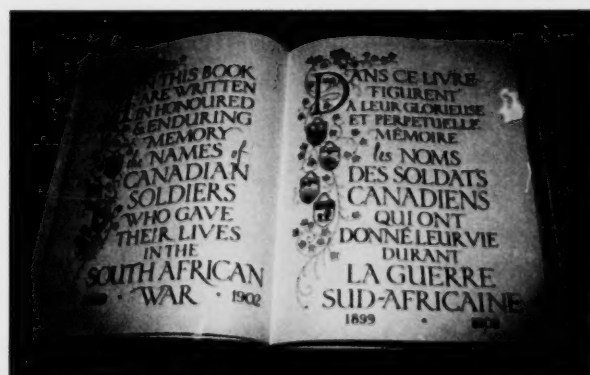 IN THIS BOOK
ARE WRITTEN
IN HONOURED
& ENDURING
MEMORY
the NAMES of
CANADIAN
SOLDIERS
WHO GAVE
THEIR LIVES
IN THE
SOUTH AFRICAN
· WAR · 1902
DANS CE LIVRE
FIGURENT
À LEUR GLORIEUSE
ET PERPETUELLE
MÉMOIRE
les NOMS
DES SOLDATS
CANADIENS
QUI ONT
DONNÉ LEUR VIE
DURANT
LA GUERRE
SUD-AFRICAINE
1899 ·